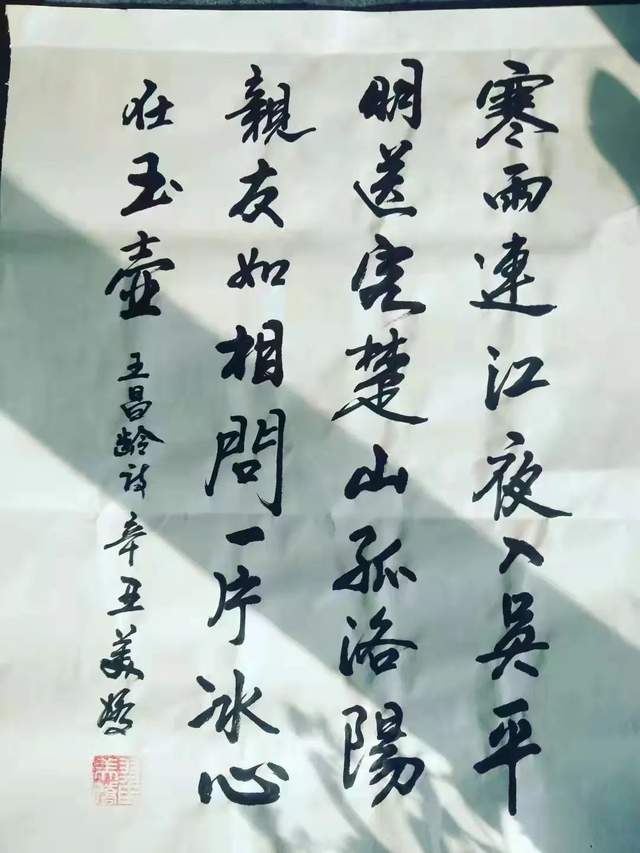 寒雨連江夜入吳平
明送客楚山孤洛陽
親友如相問一片冰心
在玉壺 王昌齡詩 辛丑 美